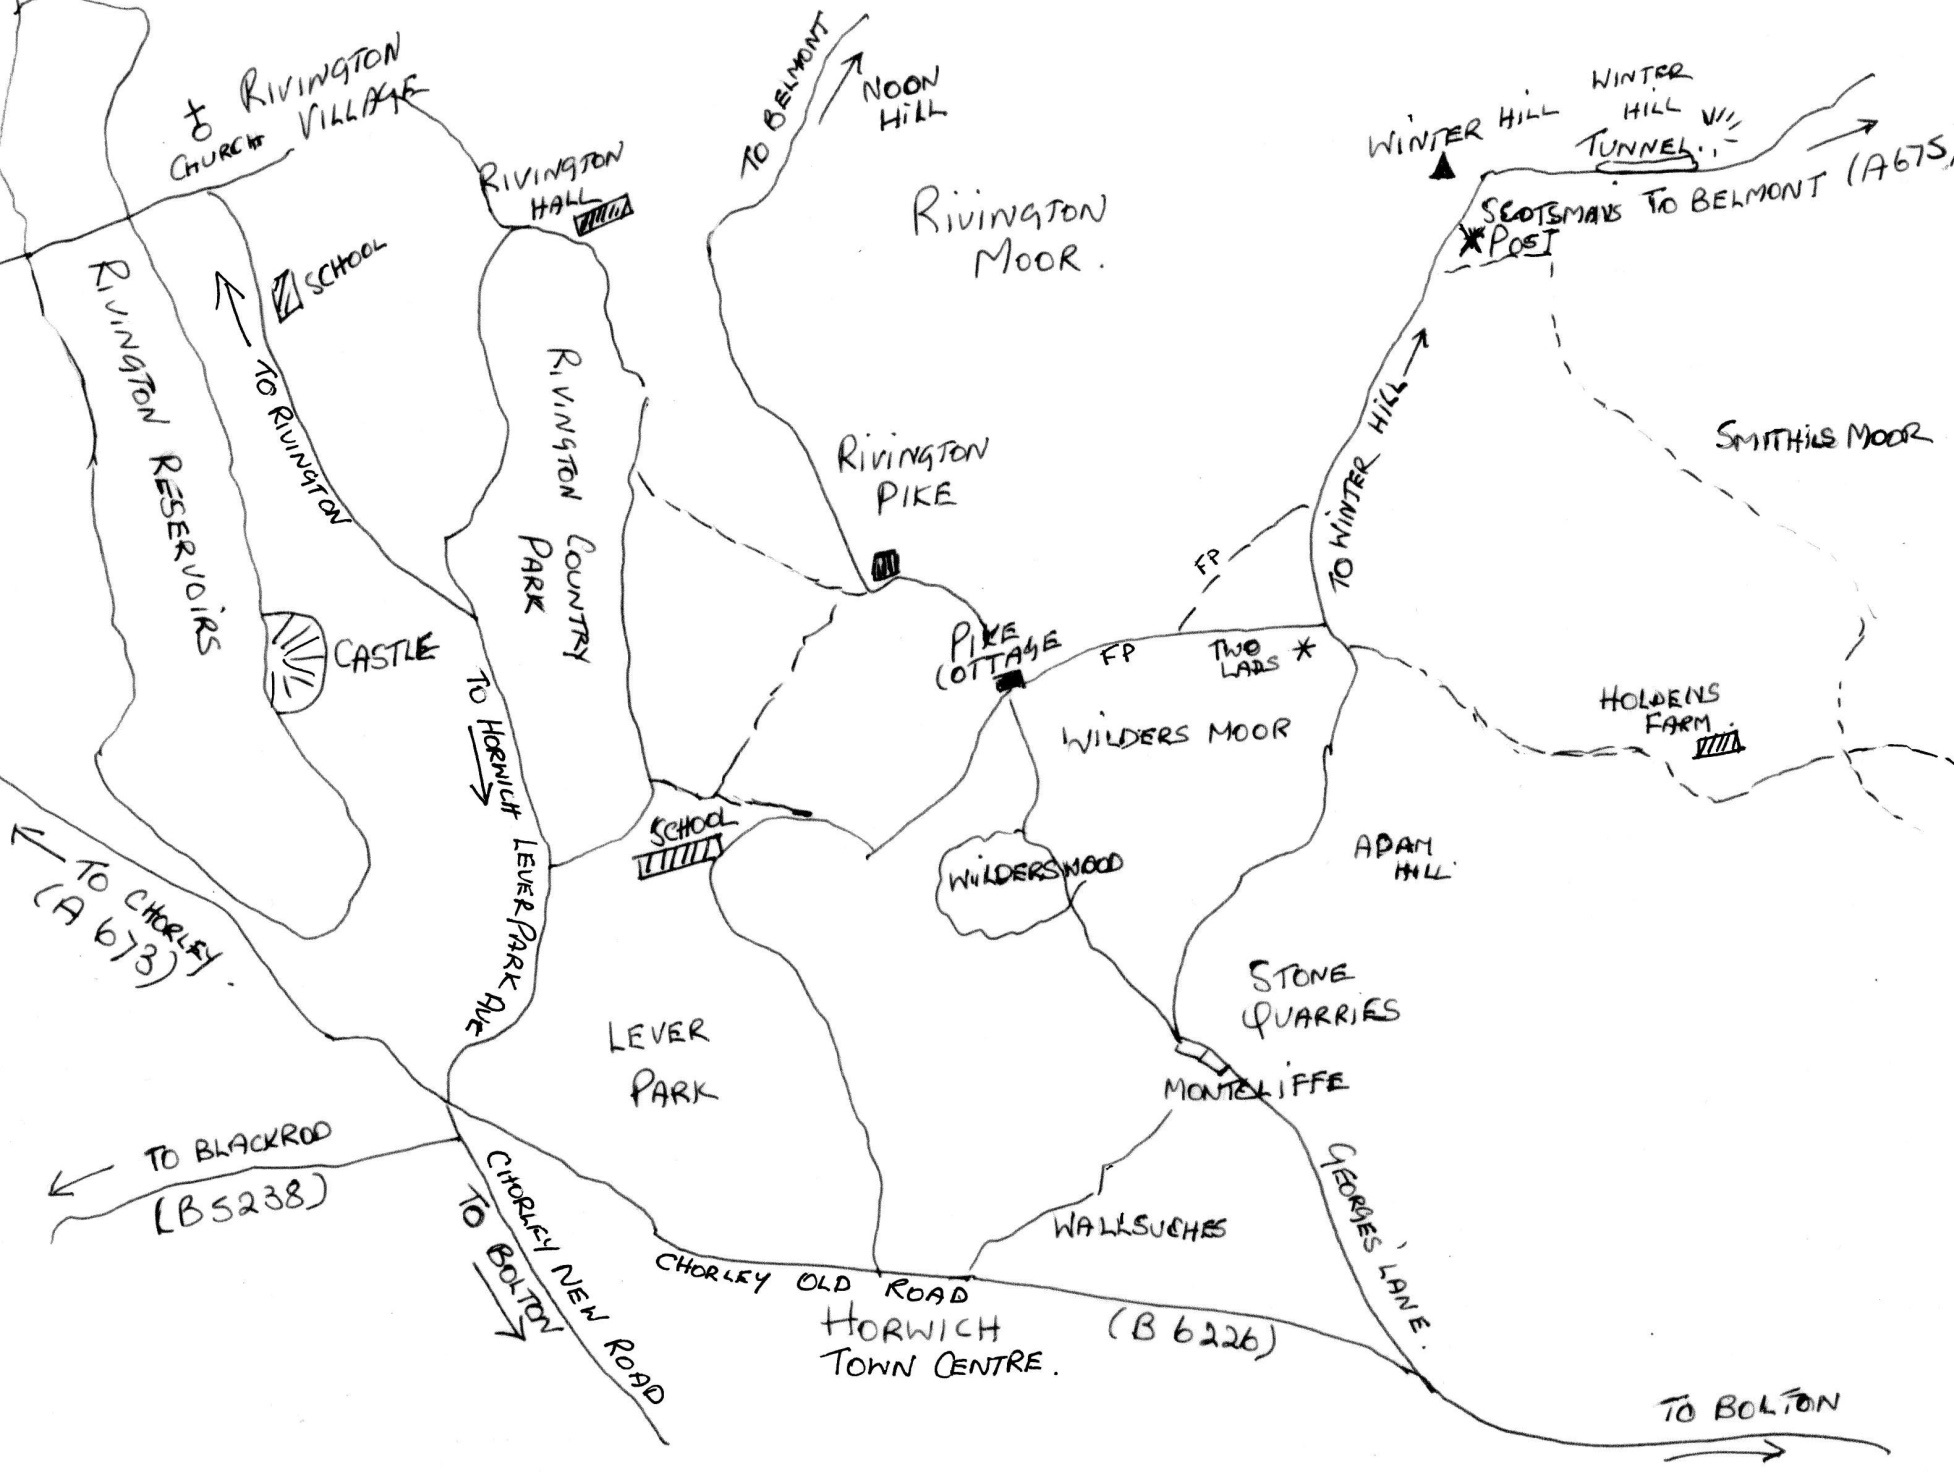 RIVINGTON
VILLAGE
CHURCH
RIVINGTON
HALL
TO BELMONT
NOON
HILL
WINTER HILL
WINTER
HILL
TUNNEL
TO BELMONT (A675)
SCOTSMANS
POST
RIVINGTON
MOOR.
SCHOOL
TO RIVINGTON
RIVINGTON RESERVOIRS
RIVINGTON COUNTRY
PARK
RIVINGTON
PIKE
TO WINTER HILL
SMITHILS MOOR
FP
CASTLE
PIKE
COTTAGE
FP
TWO
LADS
WILDERS MOOR
HOLDENS
FARM.
TO HORWICH
LEVER PARK AVE
SCHOOL
WILDERSWOOD
ADAM
HILL
TO CHORLEY.
(A 673)
STONE
QUARRIES
LEVER
PARK
MONTCLIFFE
TO BLACKROD
(B5238)
CHORLEY NEW ROAD
TO BOLTON
WALLSUCHES
GEORGES' LANE.
CHORLEY OLD ROAD
(B 6226)
HORWICH
TOWN CENTRE.
TO BOLTON